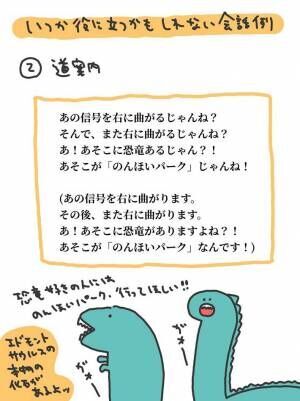 いつか役に立つかもしれない会話例
② 道案内
あの信号を右に曲がるじゃんね?
そんで、また右に曲がるじゃんね?
あ!あそこに恐竜あるじゃん?!
あそこが「のんほいパーク」じゃんね!
(あの信号を右に曲がります。
その後、また右に曲がります。
あ!あそこに恐竜がありますよね?!
あそこが「のんほいパーク」なんです!)
恐竜好きの人には
のんほいパーク、行ってほしい!!
エドモント
サウルスの
本物の
化石が
あるよッ
ガオー
ガオー